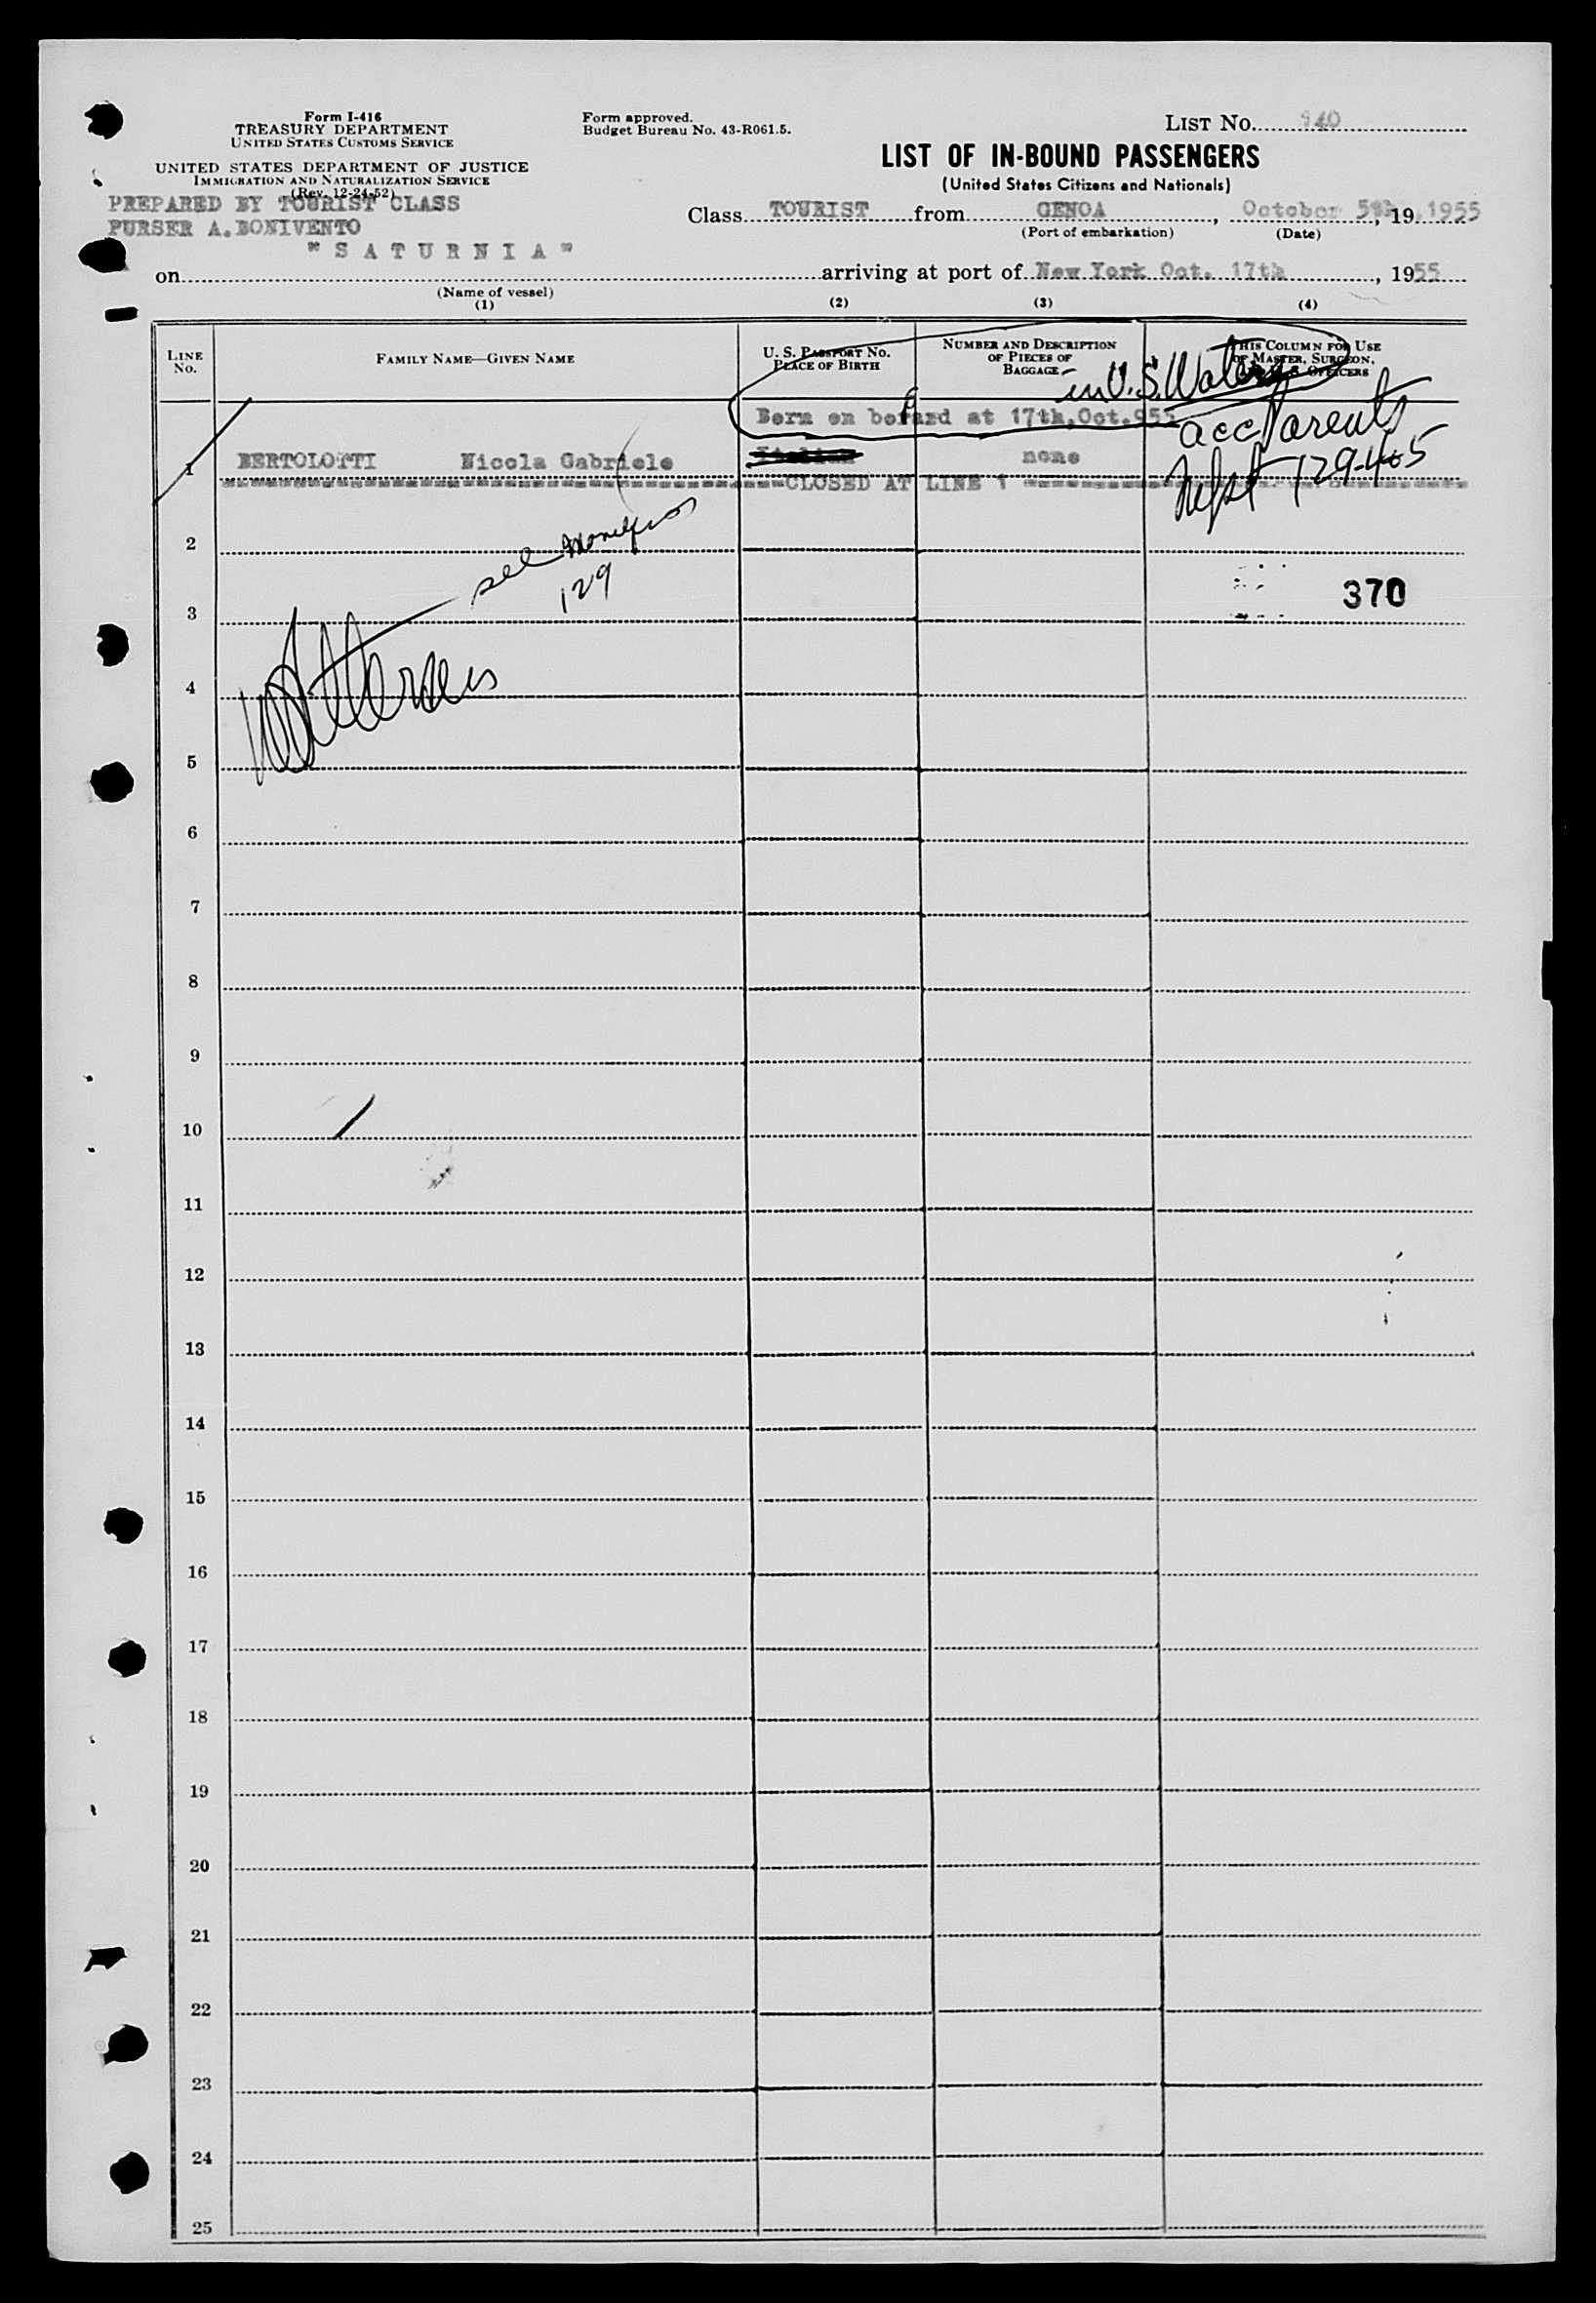 Form I-416
TREASURY DEPARTMENT
UNITED STATES CUSTOMS SERVICE
UNITED STATES DEPARTMENT OF JUSTICE
IMMIGRATION AND NATURALIZATION SERVICE
(Rev. 12-24-52)
Form approved.
Budget Bureau No. 43-R061.5.
LIST No. 940
LIST OF IN-BOUND PASSENGERS
(United States Citizens and Nationals)
PREPARED BY TOURIST CLASS
PURSER A. BONIVENTO
Class TOURIST from GENOA, October 5th, 19 1955
(Port of embarkation) (Date)
on "SATURNIA" arriving at port of New York Oct. 17th, 1955
(Name of vessel)
(1) (2) (3) (4)
LINE No.
FAMILY NAME—GIVEN NAME
U. S. PASSPORT No. PLACE OF BIRTH
NUMBER AND DESCRIPTION OF PIECES OF BAGGAGE
THIS COLUMN FOR USE OF MASTER, SURGEON, AND U. S. OFFICERS
in U.S. Waters
Born on bofard at 17th,Oct.955
acc Parents
1 BERTOLOTTI Nicola Gabriele none
129-4
CLOSED AT LINE 1
see
129
2
370
3
4
5
6
7
8
9
10
11
12
13
14
15
16
17
18
19
20
21
22
23
24
25